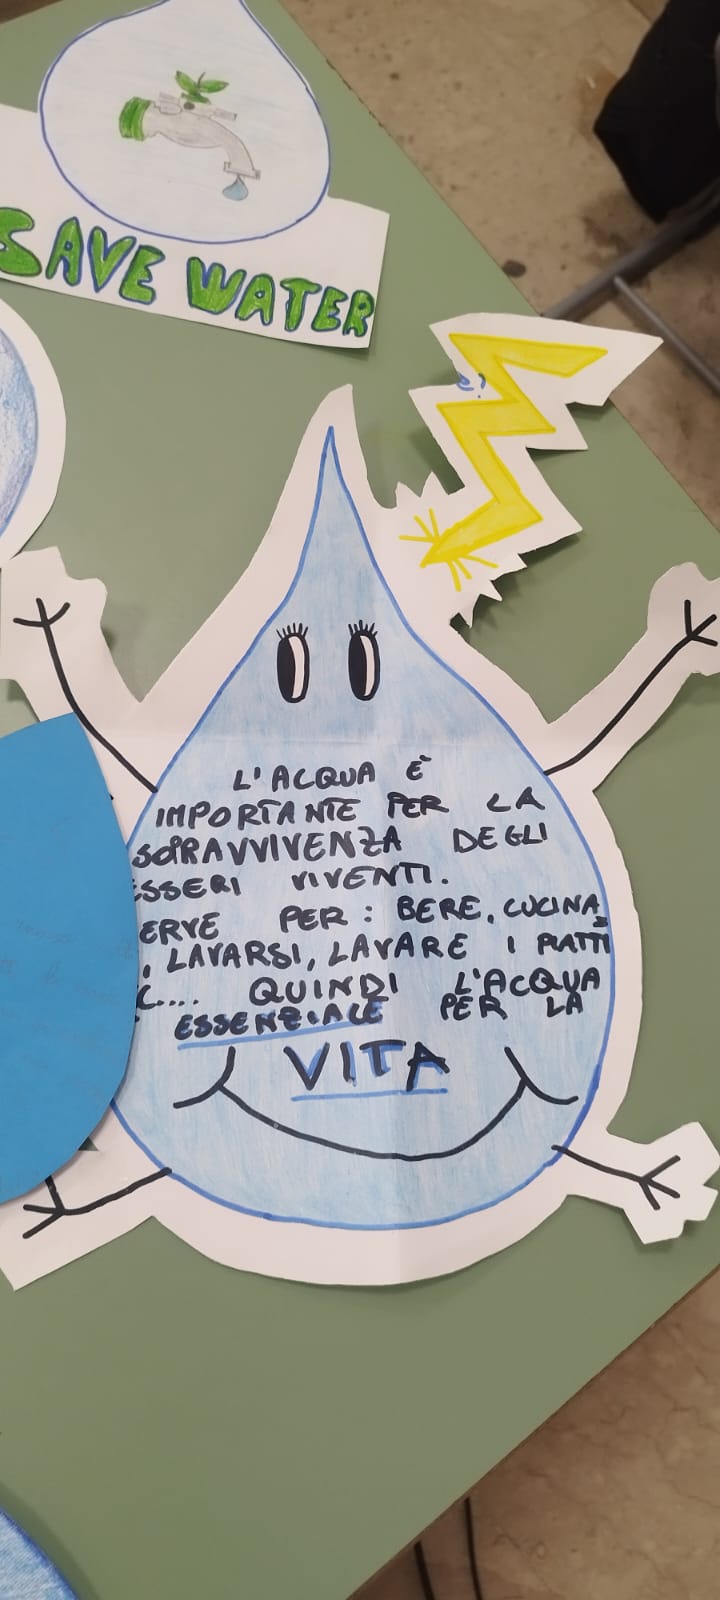 SAVE WATER
L'ACQUA È
IMPORTANTE PER LA
SOPRAVVIVENZA DEGLI
ESSERI VIVENTI.
ERVE PER: BERE, CUCINA
, LAVARSI, LAVARE I PIATTI
C.... QUINDI L'ACQUA
ESSENZIALE PER LA
VITA